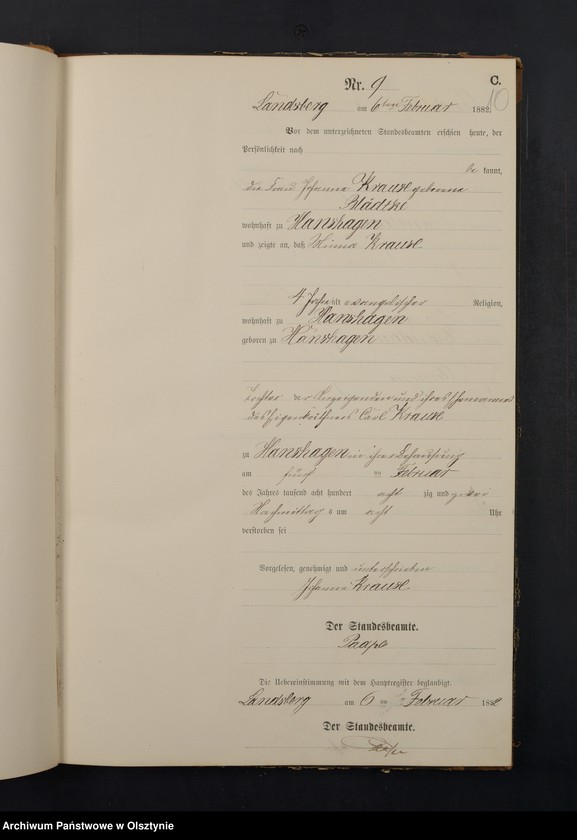 C.
Nr. 9
10
Landsberg am 6ten Februar 1882.
Vor dem unterzeichneten Standesbeamten erschien heute, der
Persönlichkeit nach
be kannt,
die Frau Johanna Krause geborene
wohnhaft zu Hanshagen
und zeigte an, daß Minna Krause
4 Jahre alt evangelischer Religion,
wohnhaft zu Hanshagen
geboren zu Hanshagen
Tochter der Anzeigenden und ihres Ehemannes
des Eigenkäthners Carl Krause
zu Hanshagen in ihrer Behausung
am fünf ten Februar
des Jahres tausend acht hundert acht zig und zwei
Nachmittag s um acht Uhr
verstorben sei
Vorgelesen, genehmigt und unterschrieben
Johanna Krause
Der Standesbeamte.
Paape
Die Uebereinstimmung mit dem Hauptregister beglaubigt.
Landsberg am 6 ten Februar 1882
Der Standesbeamte.
Paape
Archiwum Państwowe w Olsztynie